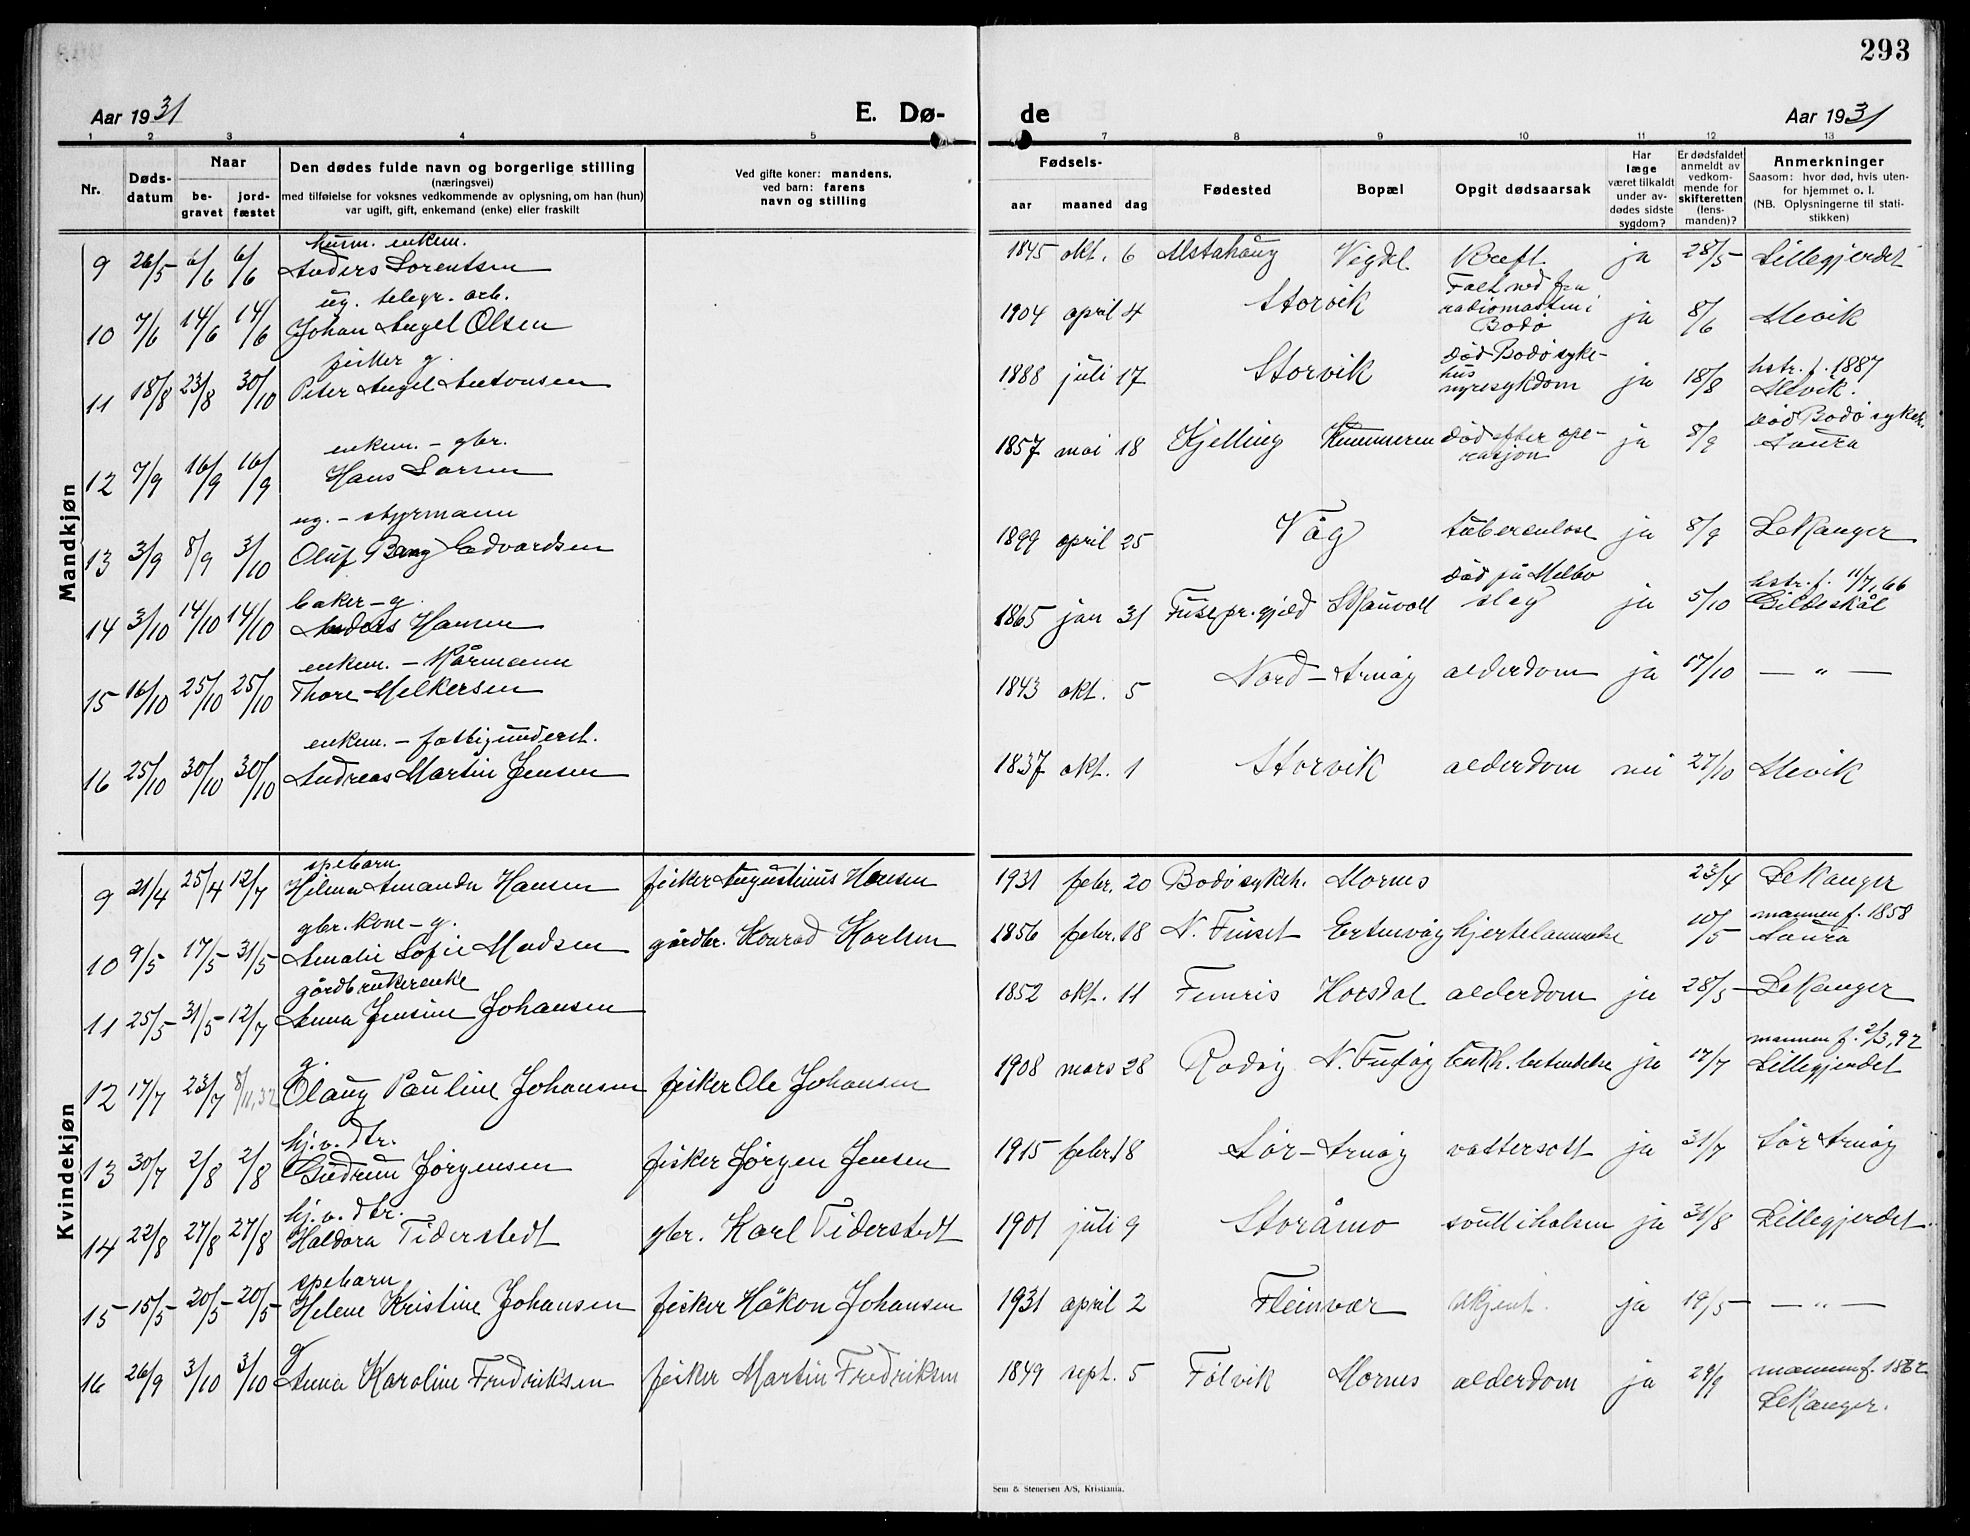 293
Aar 1931 E. Dø- de Aar 1931
1 2 3 4 5 7 8 9 10 11 12 13
Nr. Dødsdatum Naar begravet jordfæstet Den dødes fulde navn og borgerlige stilling (næringsvei) med tilføielse for voksnes vedkommende av oplysning, om han (hun) var ugift, gift, enkemand (enke) eller fraskilt Ved gifte koner: mandens. ved barn: farens navn og stilling Fødsels- aar maaned dag Fødested Bopæl Opgit dødsaarsak Har læge været tilkaldt under avdødes sidste sygdom? Er dødsfaldet anmeldt av vedkommende for skifteretten (lensmanden)? Anmerkninger Saasom: hvor død, hvis utenfor hjemmet o. l. (NB. Oplysningerne til statistikken)
Mandkjøn
9 26/5 6/6 6/6 husm. enkem. Anders Lorentsen 1845 okt. 6 Alstahaug Vigdel Kreft ja 28/5 Lillegjerdet
10 7/6 14/6 14/6 ug. telegr. arb. Johan Angel Olsen 1904 april 4 Storvik Falt ned fra radiomasten i Bodø ja 8/6 Mevik
11 18/8 23/8 30/10 fisker g. Peter Angel Antonsen 1888 juli 17 Storvik død Bodø sykehus nyresykdom ja 18/8 hstr. f. 1887 Mevik.
12 7/9 16/9 16/9 enkem. - gbr. Hans Larsen 1857 mai 18 Kjelling død efter operasjon ja 8/9 død Bodø sykeh. Saura
13 3/9 8/9 3/10 ug. - styrmann Oluf Bang Edvardsen 1899 april 25 Våg tuberculose ja 8/9 Lekanger
14 3/10 14/10 14/10 baker - g. Anders Hansen 1865 jan 31 Fuse pr.gjeld Skauvoll død på Melbo slag ja 5/10 hstr. f. 11/7,66 Gildeskål
15 16/10 25/10 25/10 enkem. - Kårmann Thore Melkersen 1843 okt. 5 Nord-Arnøy alderdom ja 17/10 — " —
16 25/10 30/10 30/10 enkem. - fattigunderst. Andreas Martin Jensen 1837 okt. 1 Storvik alderdom nei 27/10 Mevik
Kvindekjøn
9 21/4 25/4 12/7 spebarn Hilma Amanda Hansen fisker Augustinus Hansen 1931 febr. 20 Bodø sykeh. Mornes 23/4 Lekanger
10 9/5 17/5 31/5 gbr. kone - g. Amalie Sofie Madsen gårdbr. Konrad Karlsen 1856 febr. 18 N. Finset Ertenvåg hjertelammelse 10/5 mannen f. 1858 Saura
11 25/5 31/5 12/7 gårdbrukerenke Anna Jensine Johansen 1852 okt. 11 Horsdal alderdom ja 28/5 Lekanger
12 17/7 23/7 8/11,32 g. Olaug Pauline Johansen fisker Ole Johansen 1908 mars 28 Rødøy N. Fugløy ja 17/7 mannen f. 2/3,92 Lillegjerdet
13 30/7 2/8 2/8 hj.v. dtr. Gudrun Jørgensen fisker Jørgen Jensen 1915 febr. 18 Sør-Arnøy vattersott ja 31/7 Sør Arnøy
14 22/8 27/8 27/8 hj.v. dtr. Haldora Tiderstedt gbr. Karl Tiderstedt 1901 juli 9 Storåmo svull i halsen ja 31/8 Lillegjerdet
15 15/5 20/5 20/5 spebarn Helene Kristine Johansen fisker Håkon Johansen 1931 april 2 Fleinvær ukjent. ja 19/5 — " —
16 26/9 3/10 3/10 g Anna Karoline Fredriksen fisker Martin Fredriksen 1849 sept. 5 Følvik Mornes alderdom ja 29/9 mannen f. 1862 Lekanger.
Sem & Stenersen A/S, Kristiania.